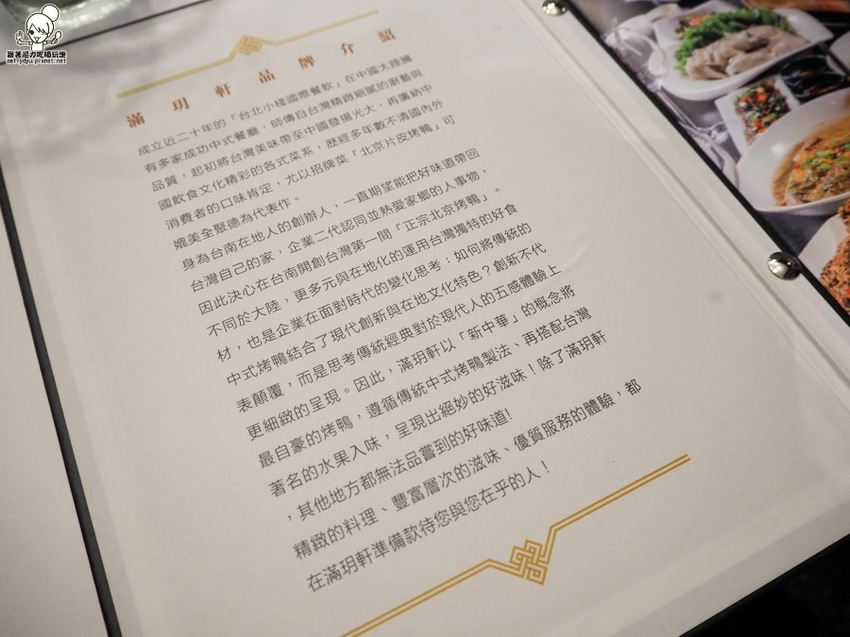 跟著尼力吃喝玩樂
nellydyu.pixnet.net
滿玥軒品牌介紹
成立近二十年的「台北小棧國際餐飲」在中國大陸擁
有多家成功中式餐廳，師傅自台灣精緻細膩的廚藝與
品質，起初將台灣美味帶至中國發揚光大，再廣納中
國飲食文化精彩的各式菜系，歷經多年數不清國內外
消費者的口味肯定，尤以招牌菜「北京片皮烤鴨」可
媲美全聚德為代表作。
身為台南在地人的創辦人，一直期望能把好味道帶回
台灣自己的家，企業二代認同並熱愛家鄉的人事物，
因此決心在台南開創台灣第一間「正宗北京烤鴨」。
不同於大陸，更多元與在地化的運用台灣獨特的好食
材，也是企業在面對時代的變化思考：如何將傳統的
中式烤鴨結合了現代創新與在地文化特色？創新不代
表顛覆，而是思考傳統經典對於現代人的五感體驗上
更細緻的呈現。因此，滿玥軒以「新中華」的概念將
最自豪的烤鴨，遵循傳統中式烤鴨製法、再搭配台灣
著名的水果入味，呈現出絕妙的好滋味！除了滿玥軒
，其他地方都無法品嘗到的好味道!
精緻的料理、豐富層次的滋味、優質服務的體驗，都
在滿玥軒準備款待您與您在乎的人！